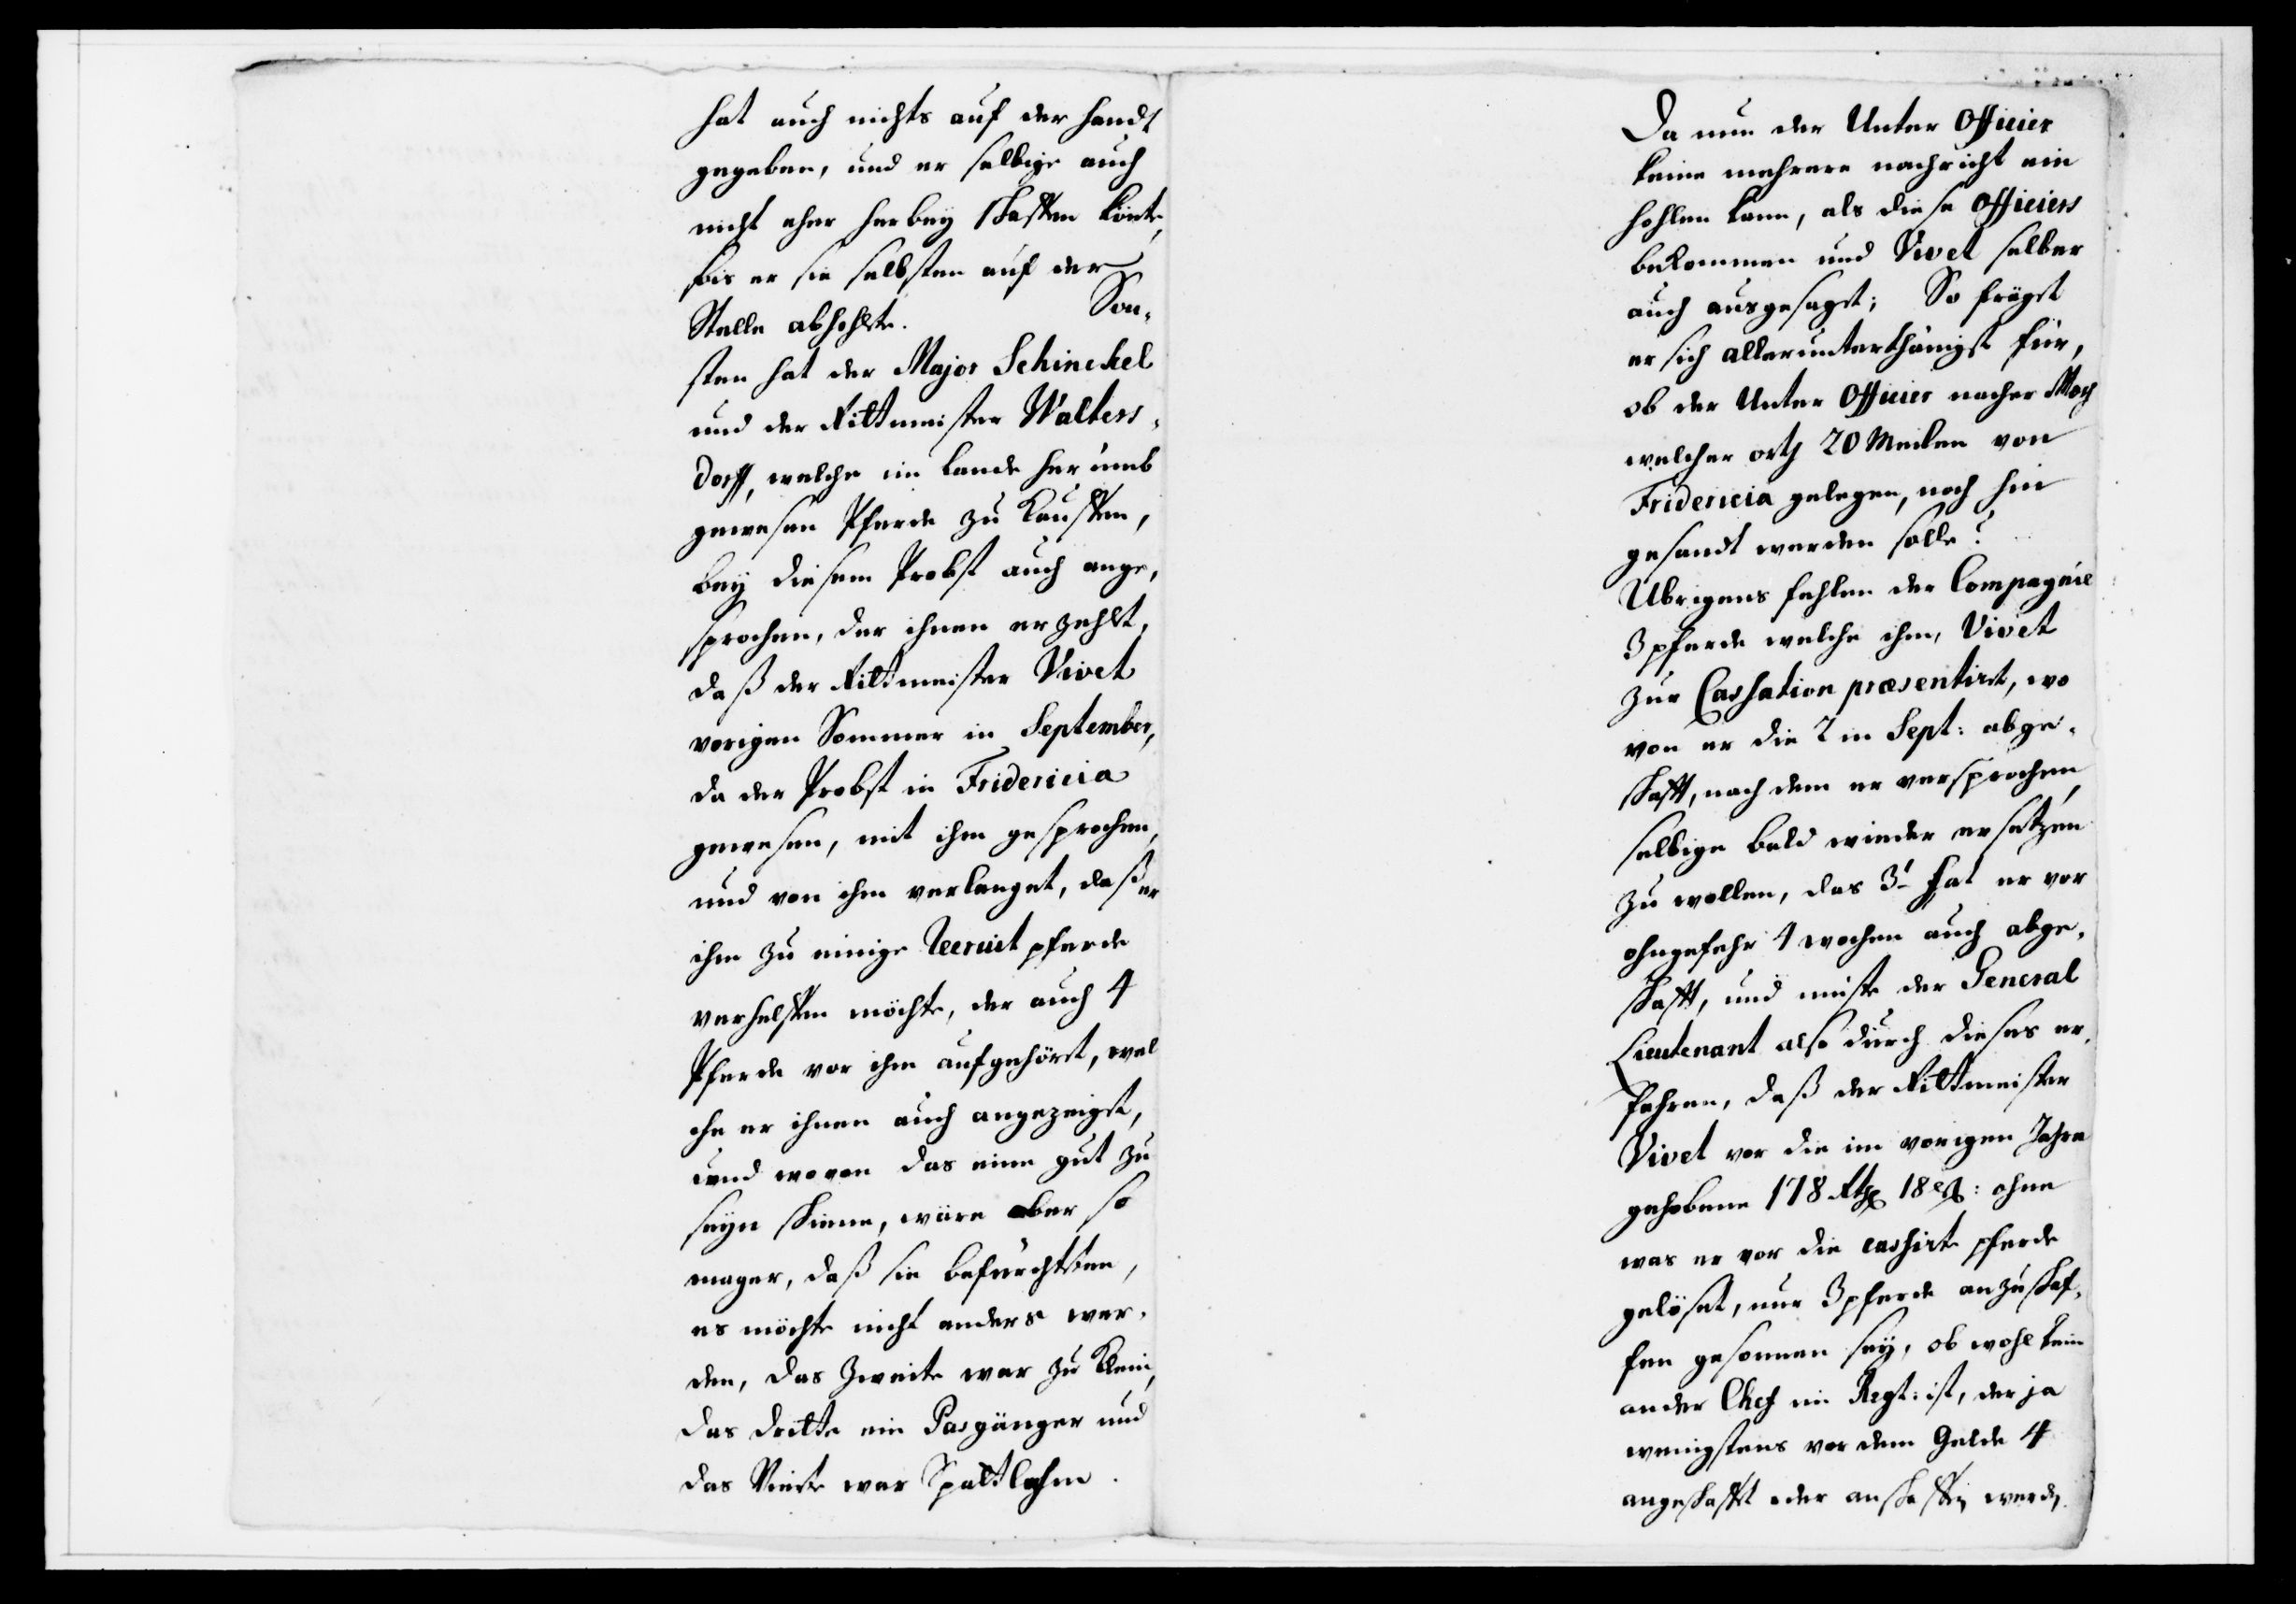 hat auch nichts auf der Handt
gegeben, und er selbige auch
nicht eher herbey schaffen könte,
bis er sie selbsten auf der
Stelle abhohlte. Son-
sten hat der Major Schinckel
und der Rittmeister Walters-
dorff, welche im Lande herumb
gewesen Pferde zu kauffen,
bey diesem Probst auch ange-
sprochen, der ihnen erzehlt,
daß der Rittmeister Vivet
vorigen Sommer in September,
da der Probst in Fridericia
gewesen, mit ihm gesprochen,
und von ihm verlanget, daß er
ihm zu einige Recruit pferde
verhelffen möchte, der auch 4
Pferde vor ihm aufgehört, wel
che er ihnen auch angezeigt,
und wovon das eine gut zu
seyn schiene, wäre aber so
mager, daß sie befürchteten,
es möchte nicht anders wer-
den, das Zweite war zu klein,
das dritte ein Pasgänger und
das Vierte war Spattlahm.
Da nun der Unter Officier
keine mehrere nachricht ein
hohlen kann, als diese Officiers
bekommen und Vivet selber
auch ausgesagt; So frägt
er sich allerunterthänigst für,
ob der Unter Officier nacher
welcher orth 20 Meilen von
Fridericia gelegen, noch hin
gesandt werden solle?
Ubrigens fehlen der Compagnie
3 pferde welche ihm, Vivet
zur Cassation præsentirt, wo
von er die 2 in Sept: abge-
schafft, nach dem er versprochen,
selbige bald wieder ersetzen
zu wollen, das 3t hat er vor
ohngefehr 4 wochen auch abge-
schafft, und müste der General
Lieutenant also durch dieses er-
fahren, daß der Rittmeister
Vivet vor die im vorigen Jahre
gehobene 178 Rthl 18 ß: ohne
was er vor die cassirte pferde
gelöset, nur 3 pferde anzuschaf-
fen gesonnen sey, ob wohl kein
ander Chef im Regt: ist, der ja
wenigstens vor dem Gelde 4
angeschafft oder anschaffen werde.